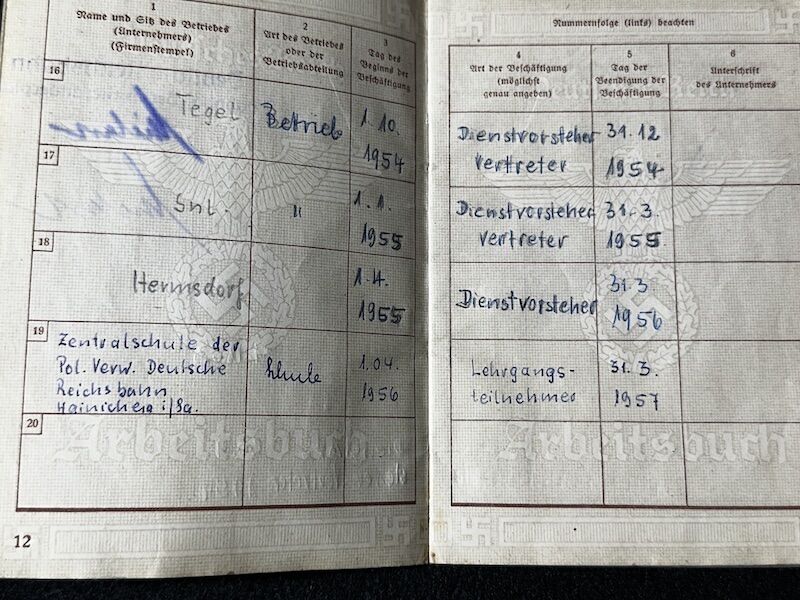 1
Name und Sitz des Betriebes
(Unternehmers)
(Firmenstempel)
2
Art des Betriebes
oder der
Betriebsabteilung
3
Tag des
Beginns der
Beschäftigung
16
Tegel
Betrieb
1.10.
1954
17
Snl.
"
1.1.
1955
18
Hermsdorf
1.4.
1955
19
Zentralschule der
Pol. Verw. Deutsche
Reichsbahn
Hainichen i/Sa.
Schule
1.04.
1956
20
Arbeitsbuch
12
Nummernfolge (links) beachten
4
Art der Beschäftigung
(möglichst
genau angeben)
5
Tag der
Beendigung der
Beschäftigung
6
Unterschrift
des Unternehmers
Dienstvorsteher
vertreter
31.12
1954
Dienstvorsteher
vertreter
31.3.
1955
Dienstvorsteher
31.3
1956
Lehrgangs-
teilnehmer
31.3.
1957
Arbeitsbuch